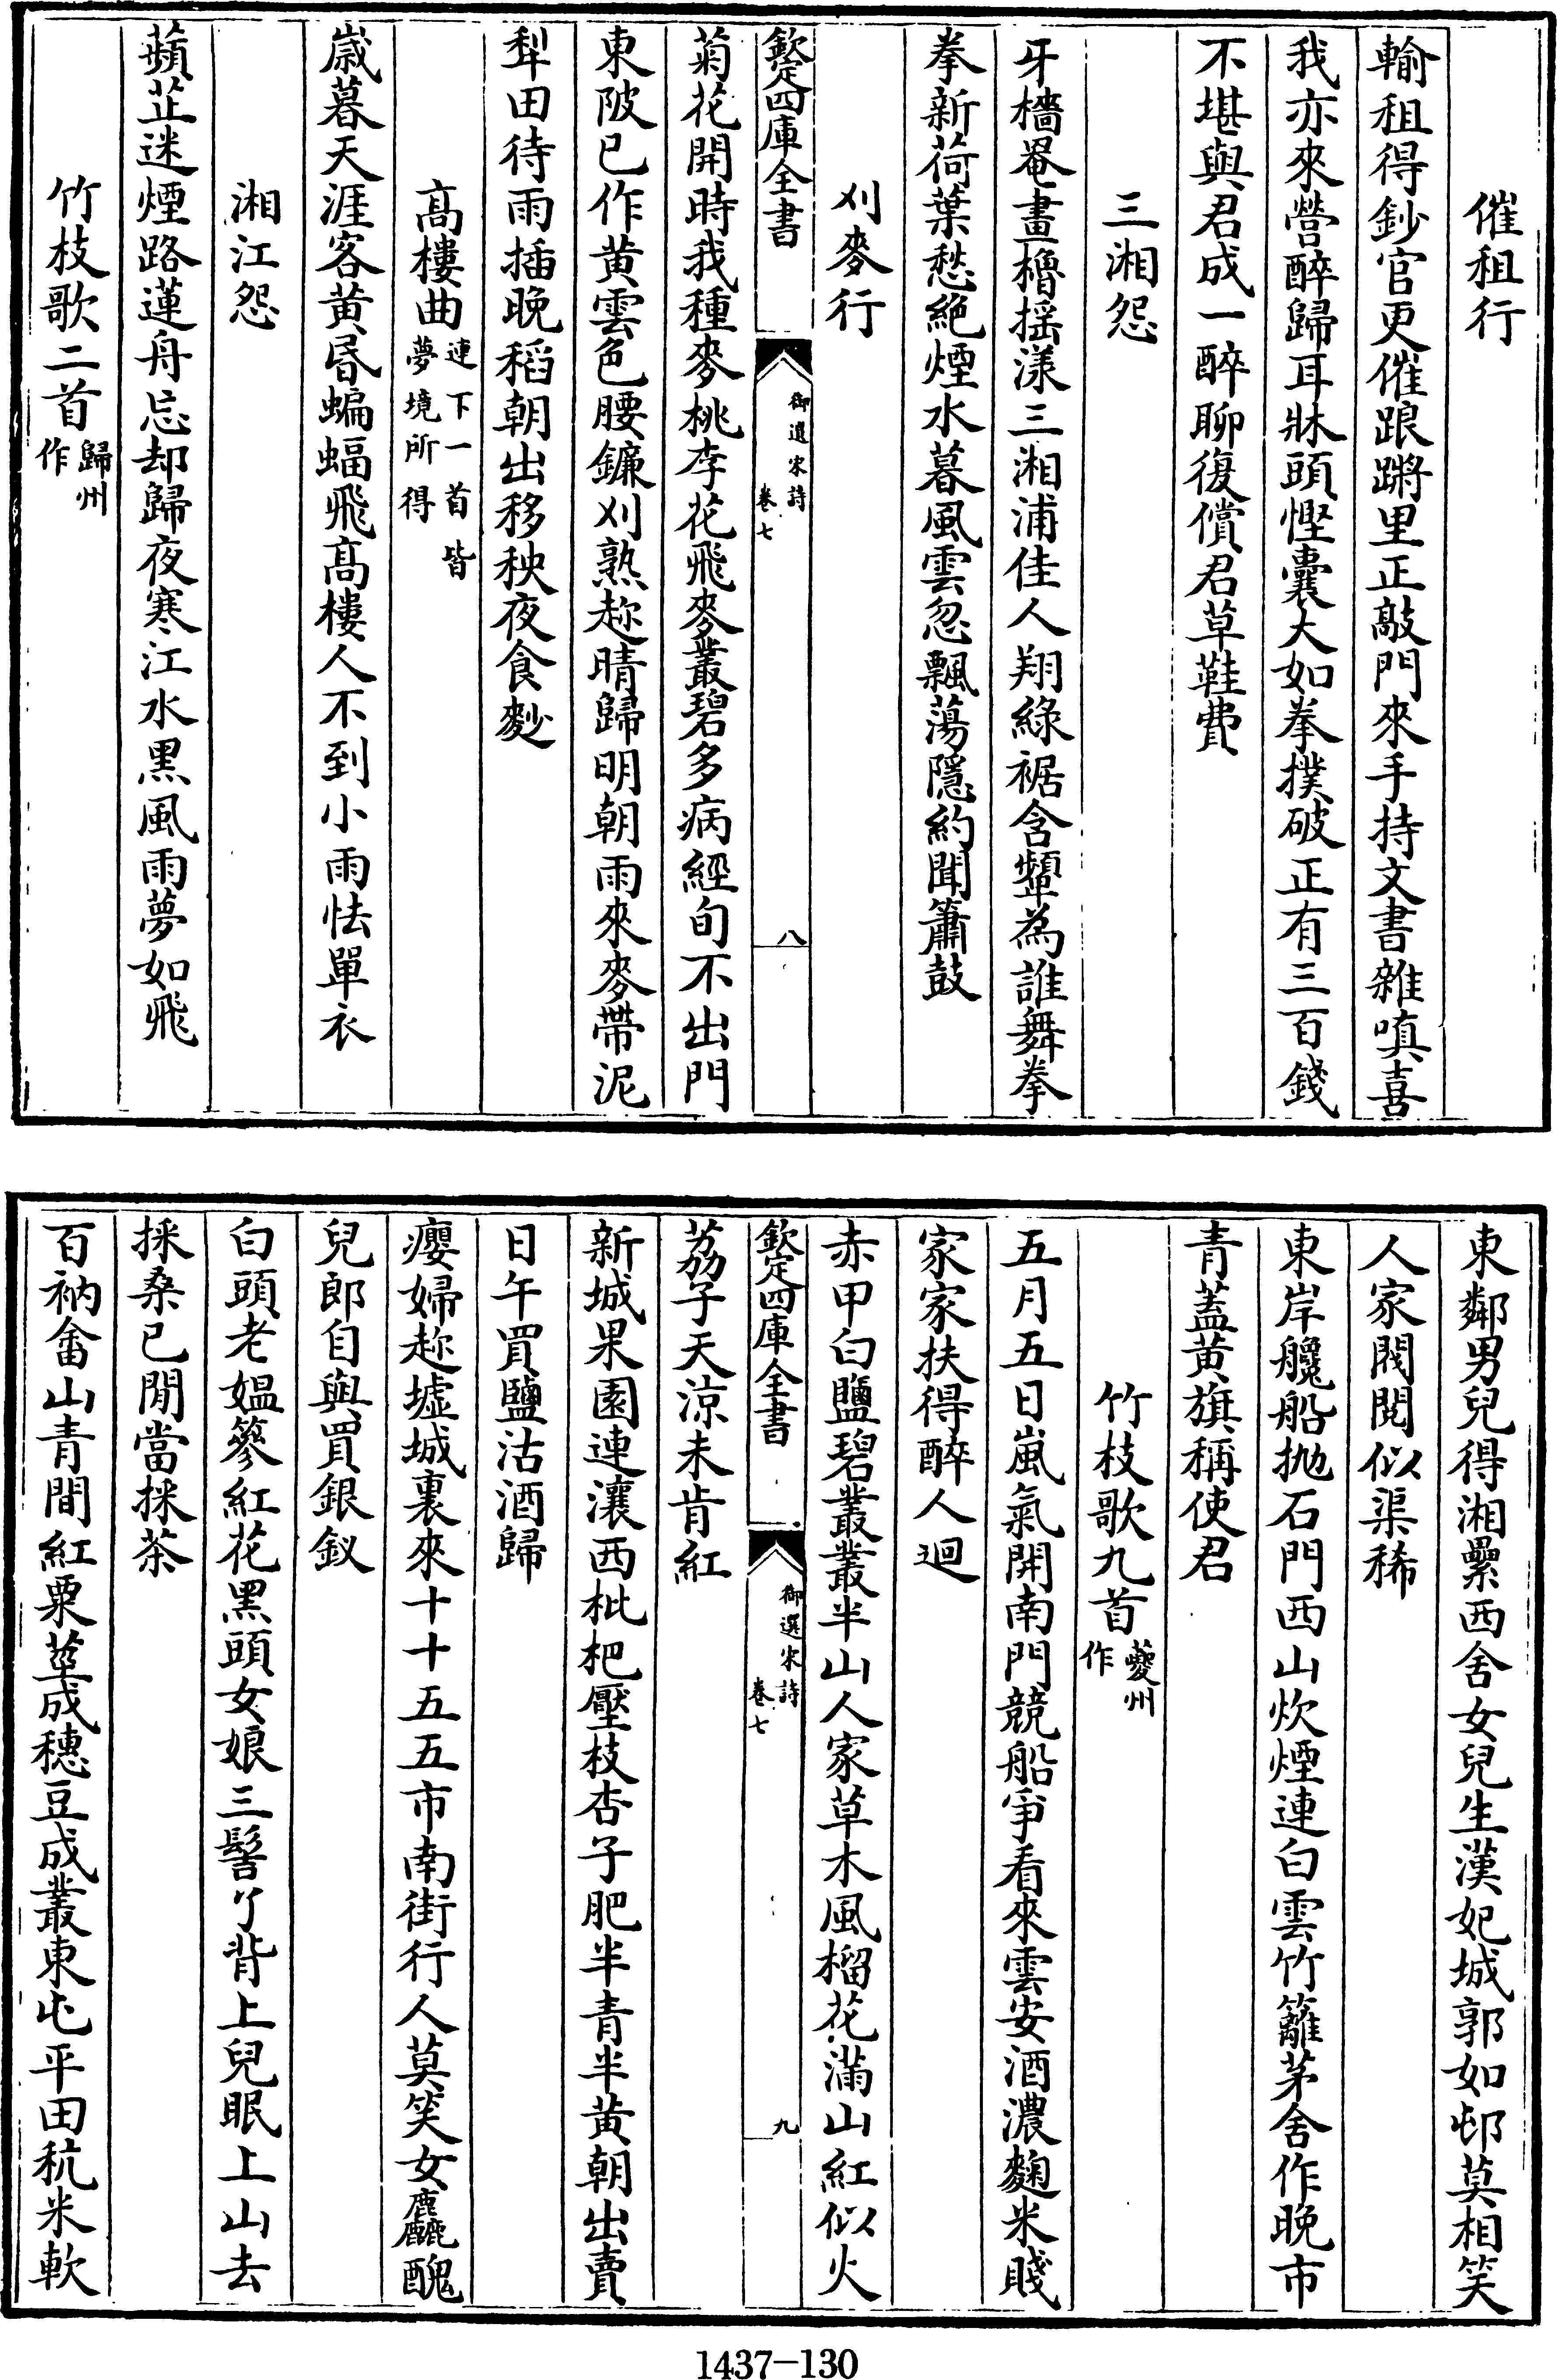 催租行
輸租得鈔官更催踉蹡里正敲門來手持文書雜嗔喜
我亦來營醉歸耳牀頭慳囊大如拳撲破正有三百錢
不堪與君成一醉聊復償君草鞋費
三湘怨
牙檣罨畫櫓摇漾三湘浦佳人翔綠裾含顰為誰舞拳
拳新荷葉愁絶煙水暮風雲忽飄蕩隱約聞簫鼓
刈麥行
欽定四庫全書
御選宋詩
卷七
八
菊花開時我種麥桃李花飛麥叢碧多病經旬不出門
東陂已作黄雲色腰鐮刈熟趂晴歸明朝雨來麥帶泥
犁田待雨插晚稻朝出移秧夜食麨
高樓曲連下一首皆夢境所得
嵗暮天涯客黄昏蝙蝠飛高樓人不到小雨怯單衣
湘江怨
蘋芷迷煙路蓮舟忘却歸夜寒江水黒風雨夢如飛
竹枝歌二首歸州作
東鄰男兒得湘纍西舍女兒生漢妃城郭如邨莫相笑
人家閥閲似渠稀
東岸艬船抛石門西山炊煙連白雲竹籬茅舍作晚市
青蓋黄旗稱使君
竹枝歌九首夔州作
五月五日嵐氣開南門競船爭看來雲安酒濃麴米賤
家家扶得醉人迴
赤甲白鹽碧叢叢半山人家草木風榴花滿山紅似火
荔子天涼未肯紅
欽定四庫全書
御選宋詩
卷七
九
新城果園連瀼西枇杷壓枝杏子肥半青半黄朝出賣
日午買鹽沽酒歸
癭婦趂墟城裏來十十五五市南街行人莫笑女麤醜
兒郎自與買銀釵
白頭老媼簪紅花黒頭女娘三髻丫背上兒眠上山去
採桑已閒當採茶
百衲畬山青間紅粟莖成穗豆成叢東屯平田秔米軟
1437-130